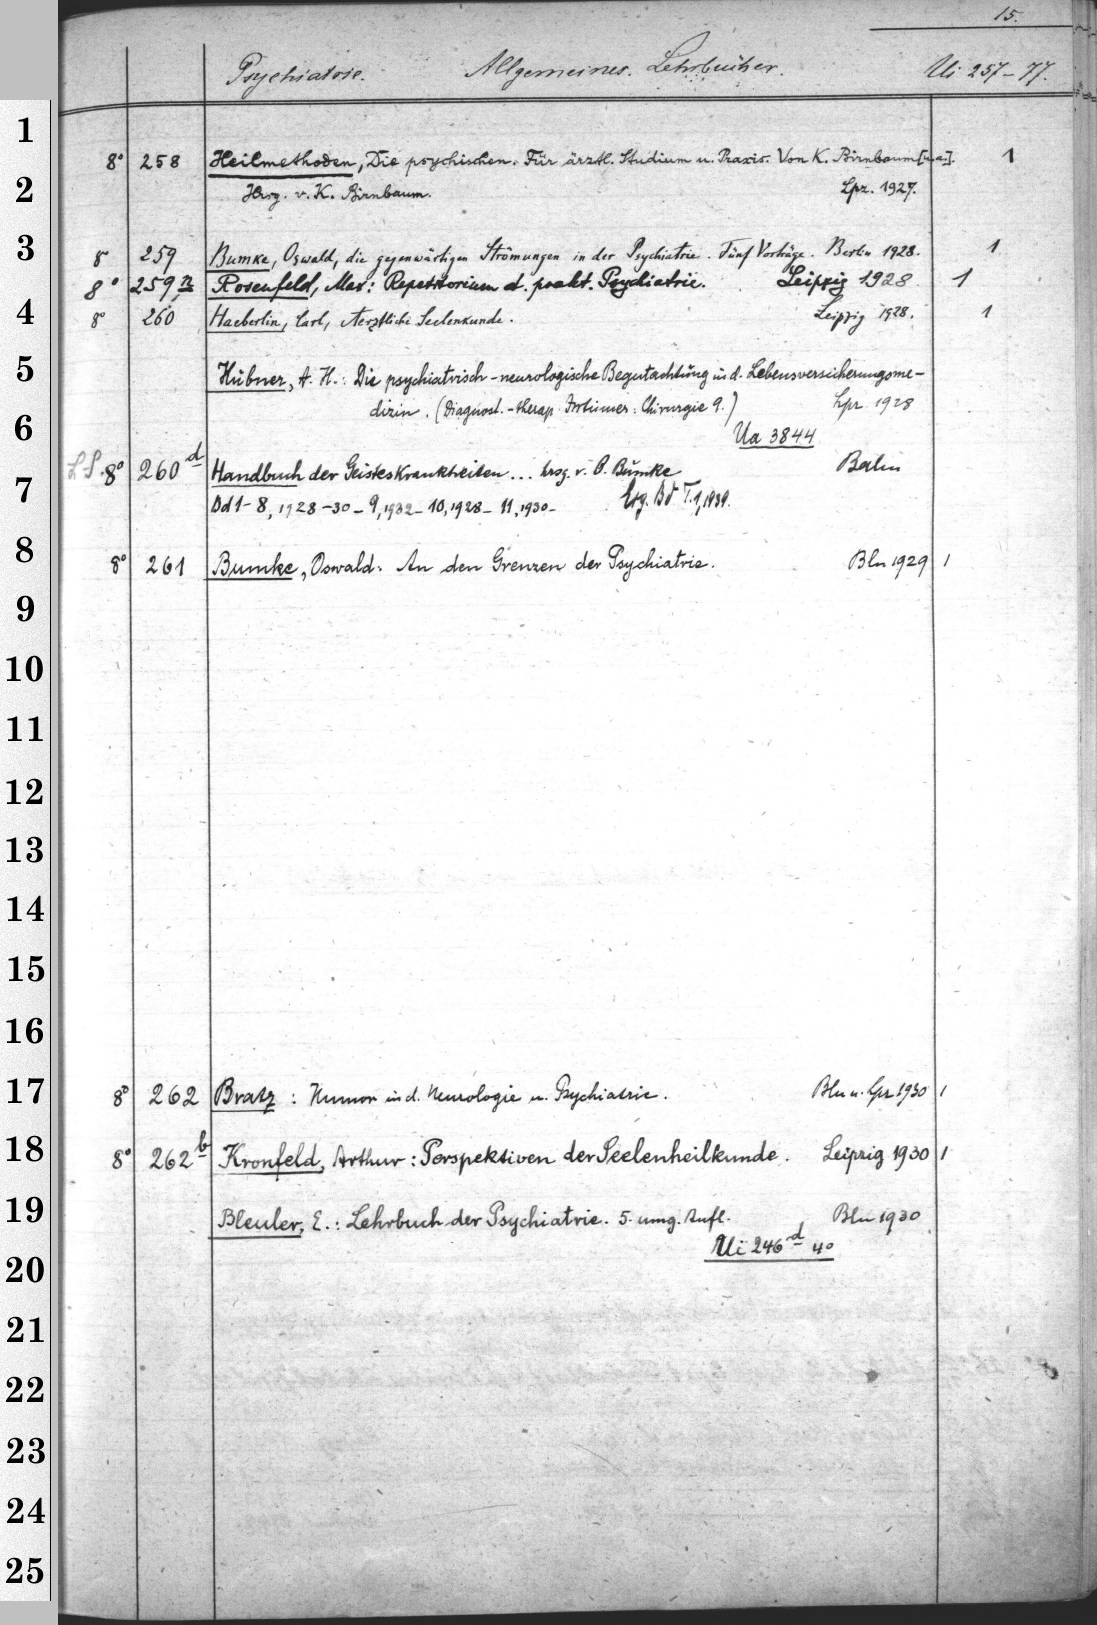 15.
Psychiatrie. Allgemeines. Lehrbücher. Ui 257-77.
1
8° 258 Heilmethoden, Die psychischen. Für ärztl. Studium u. Praxis. Von K. Birnbaum [u.a.]. 1
2
Hrsg. v. K. Birnbaum. Lpz. 1927.
3
8° 259 Bumke, Oswald, die gegenwärtigen Strömungen in der Psychiatrie. Fünf Vorträge. Berlin 1928. 1
8° 259n Rosenfeld, Max: Repetitorium d. prakt. Psychiatrie. Leipzig 1928 1
4
8° 260 Haeberlin, Carl, Aerztliche Seelenkunde. Leipzig 1928. 1
5
Hübner, A. H.: Die psychiatrisch-neurologische Begutachtung in d. Lebensversicherungsme-
dizin. (Diagnost.-therap. Irrtümer: Chirurgie 9.) Lpz. 1928
6
Ua 3844
LS. 8° 260d Handbuch der Geisteskrankheiten... hrsg. v. O. Bumke Berlin
7
Bd 1-8, 1928-30-9, 1932-10, 1928-11, 1930- Erg. Bd T.1, 1939.
8
8° 261 Bumke, Oswald: An den Grenzen der Psychiatrie. Bln 1929 1
9
10
11
12
13
14
15
16
17
8° 262 Bratz: Humor in d. Neurologie u. Psychiatrie. Bln u. Lpz 1930 1
18
8° 262b Kronfeld, Arthur: Perspektiven der Seelenheilkunde. Leipzig 1930 1
19
Bleuler, E.: Lehrbuch der Psychiatrie. 5. umg. Aufl. Bln 1930
Ui 246d 4°
20
21
22
23
24
25